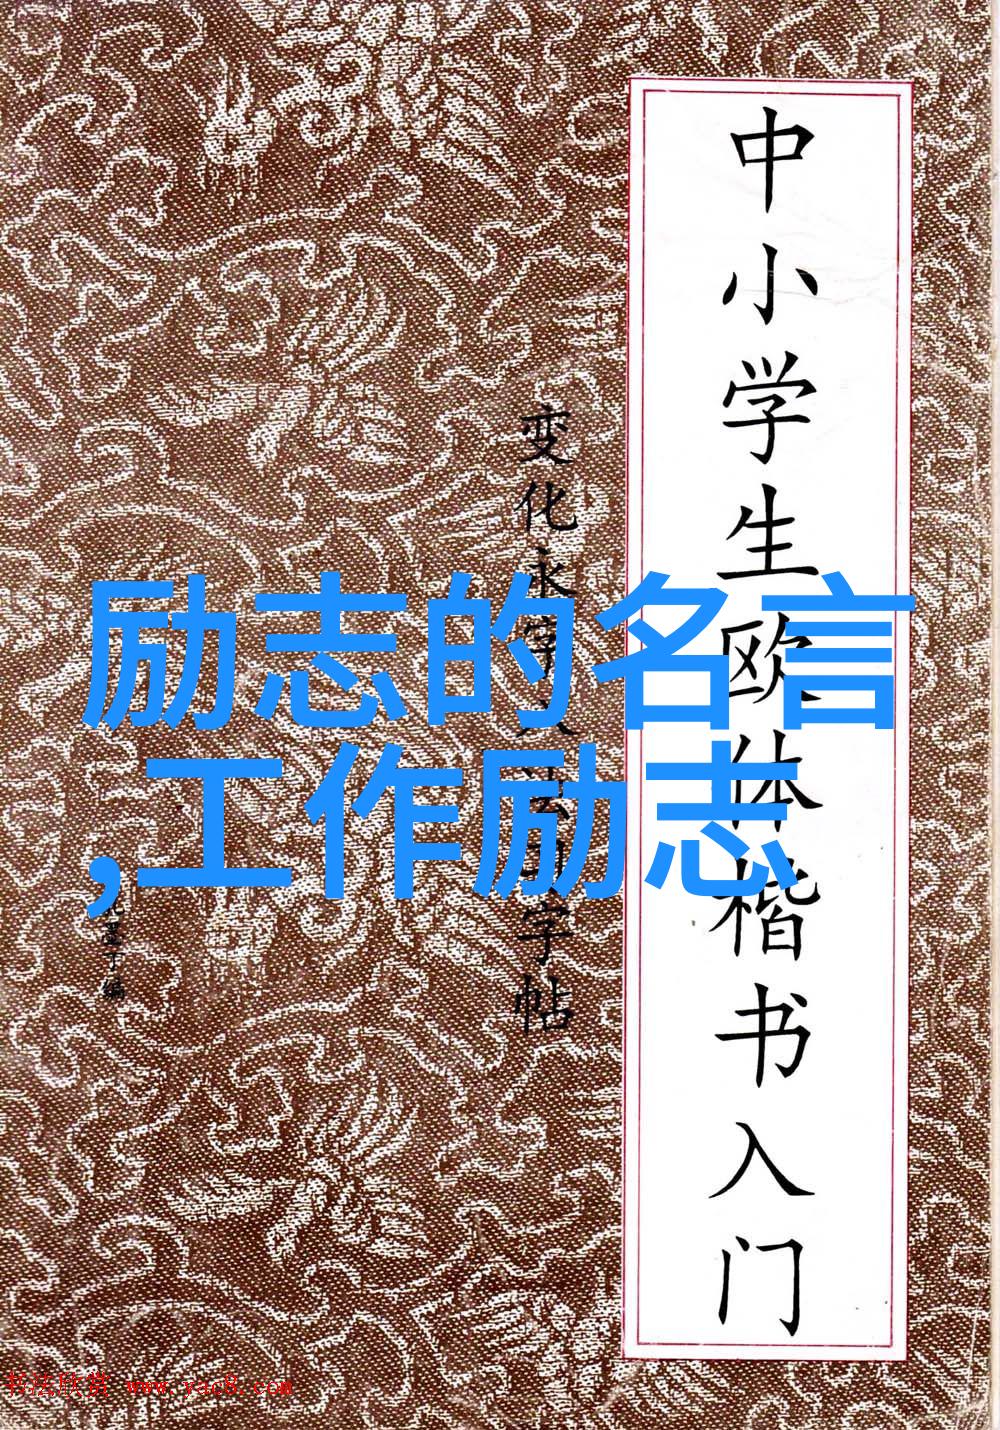 中小学生欧体楷书入门
变化永字八法字帖
编
励志的名言
,工作励志
书法欣赏 www.yac8.com